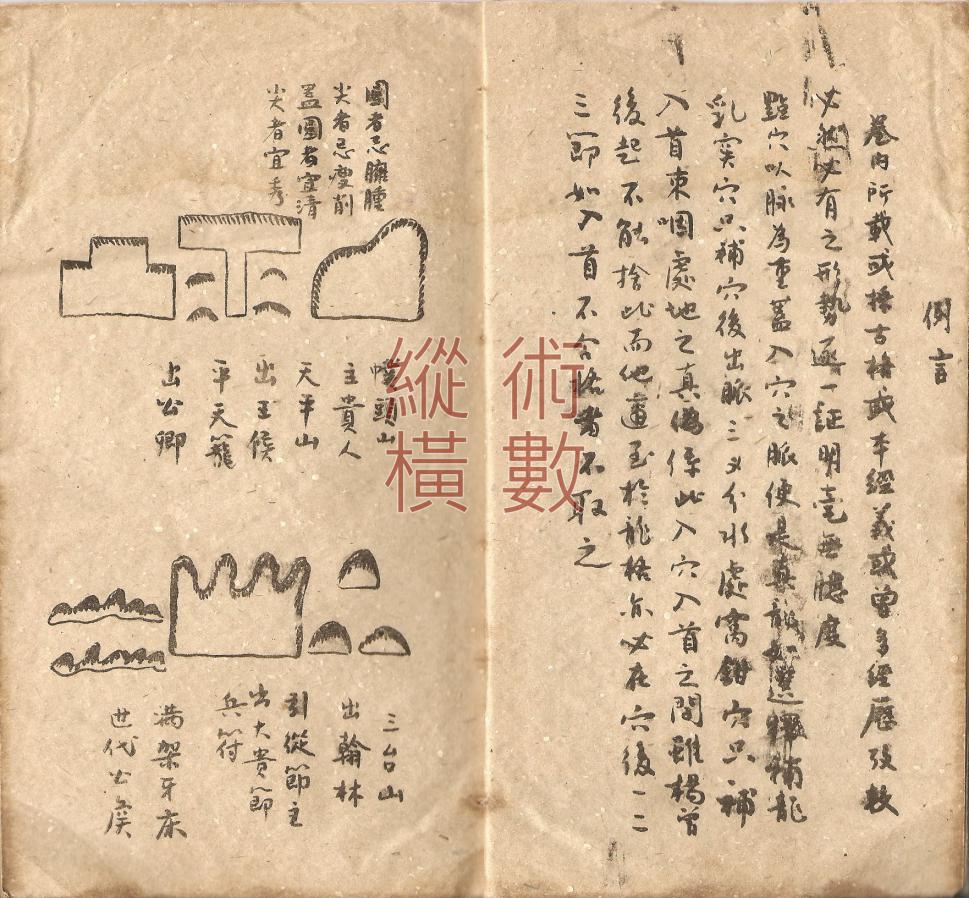 例言
卷内所載或採古格或本經義或曽多經歷攷教
必然必有之形勢逐一証明毫無臆度
點穴以脉為重蓋入穴之脈使是真龍如選擇補龍
乳突穴只補穴後出脈三义分水處窩鉗穴只補
入首束咽處地之真偽係此入穴入首之間雖楊曽
後起不能捨此而他遁至於龍格亦必在穴後一二
三節如入首不合格者不取之
圓者忌臃腫
尖者忌瘦削
蓋圓者宜清
尖者宜秀
幞頭山
主貴人
天平山
出王侯
平天籠
出公卿
三台山
出翰林
引從節主
出大貴節
兵符
滿架牙床
世代公侯
術數
縱橫